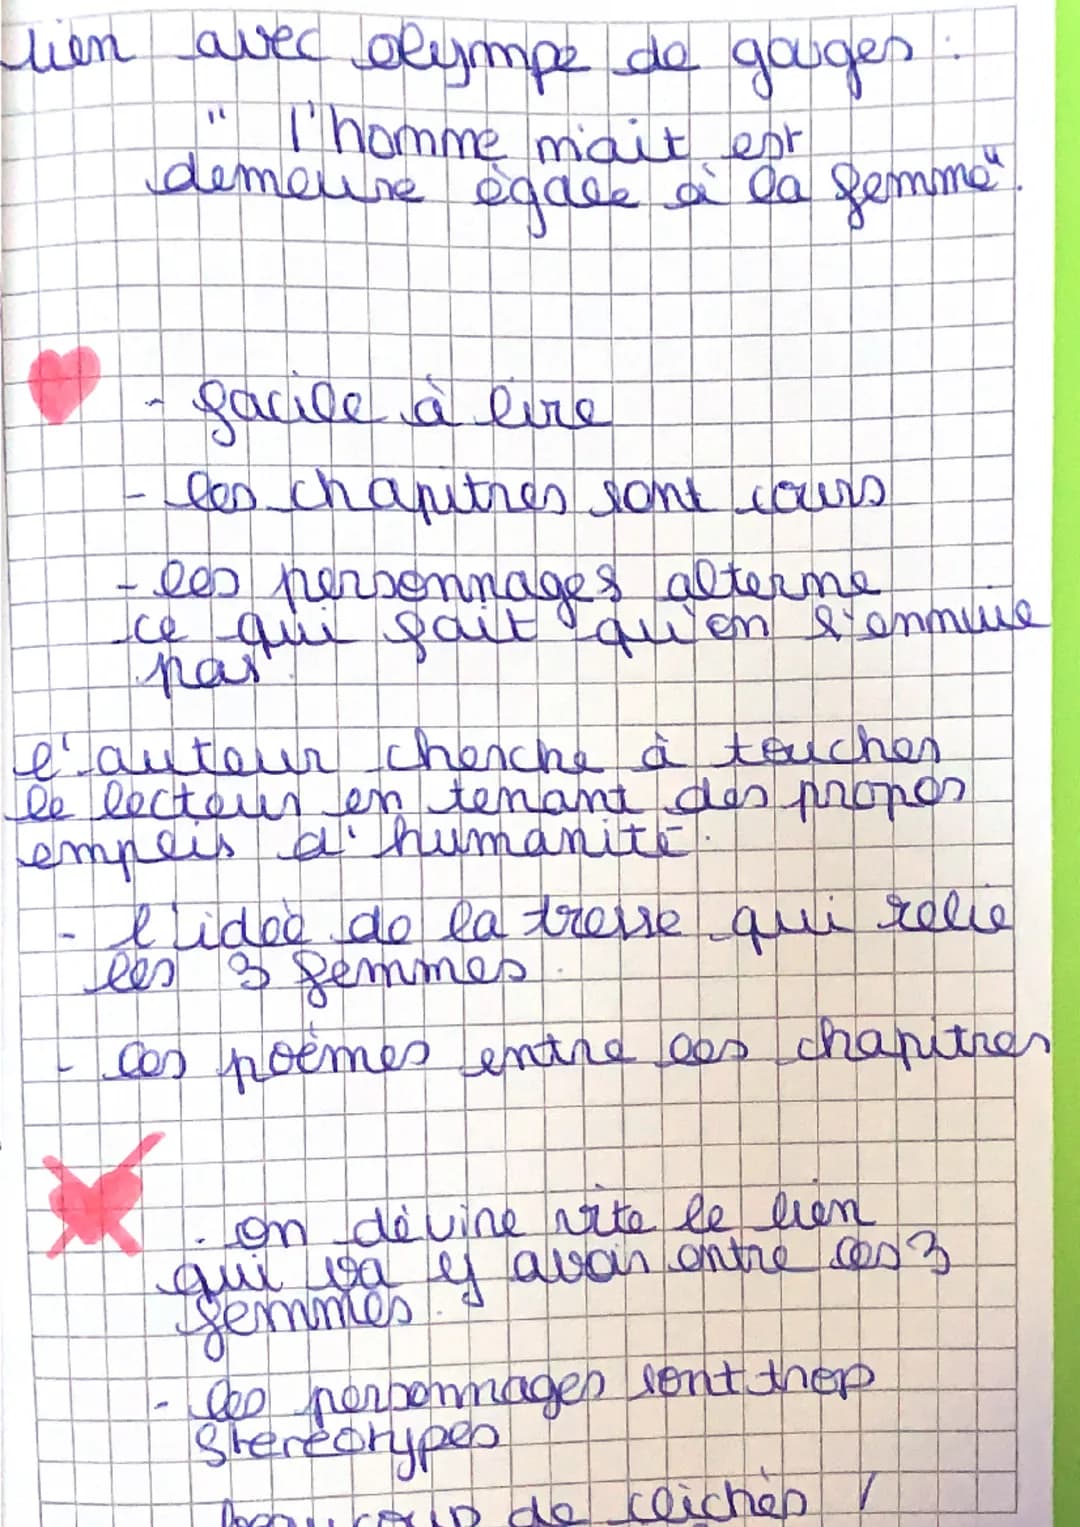 lien avec olympe de gouges :
" l'homme mait est
demeure égale à la femme".
- facile à lire
- les chapitres sont cours
- les personnages alterne
ce qui fait qu'on s'ennuie
pas
l'auteur cherche à toucher
le lecteur en tenant des propos
empleis d'humanité.
- l'ideè de la tresse qui relie
les 3 femmes.
- les poèmes entre les chapitres
- on dévine vite le lien
qui va y avoir entre ces 3
femmes.
- les personnages sont trop
stereotypes
Beaucoup de clichés /